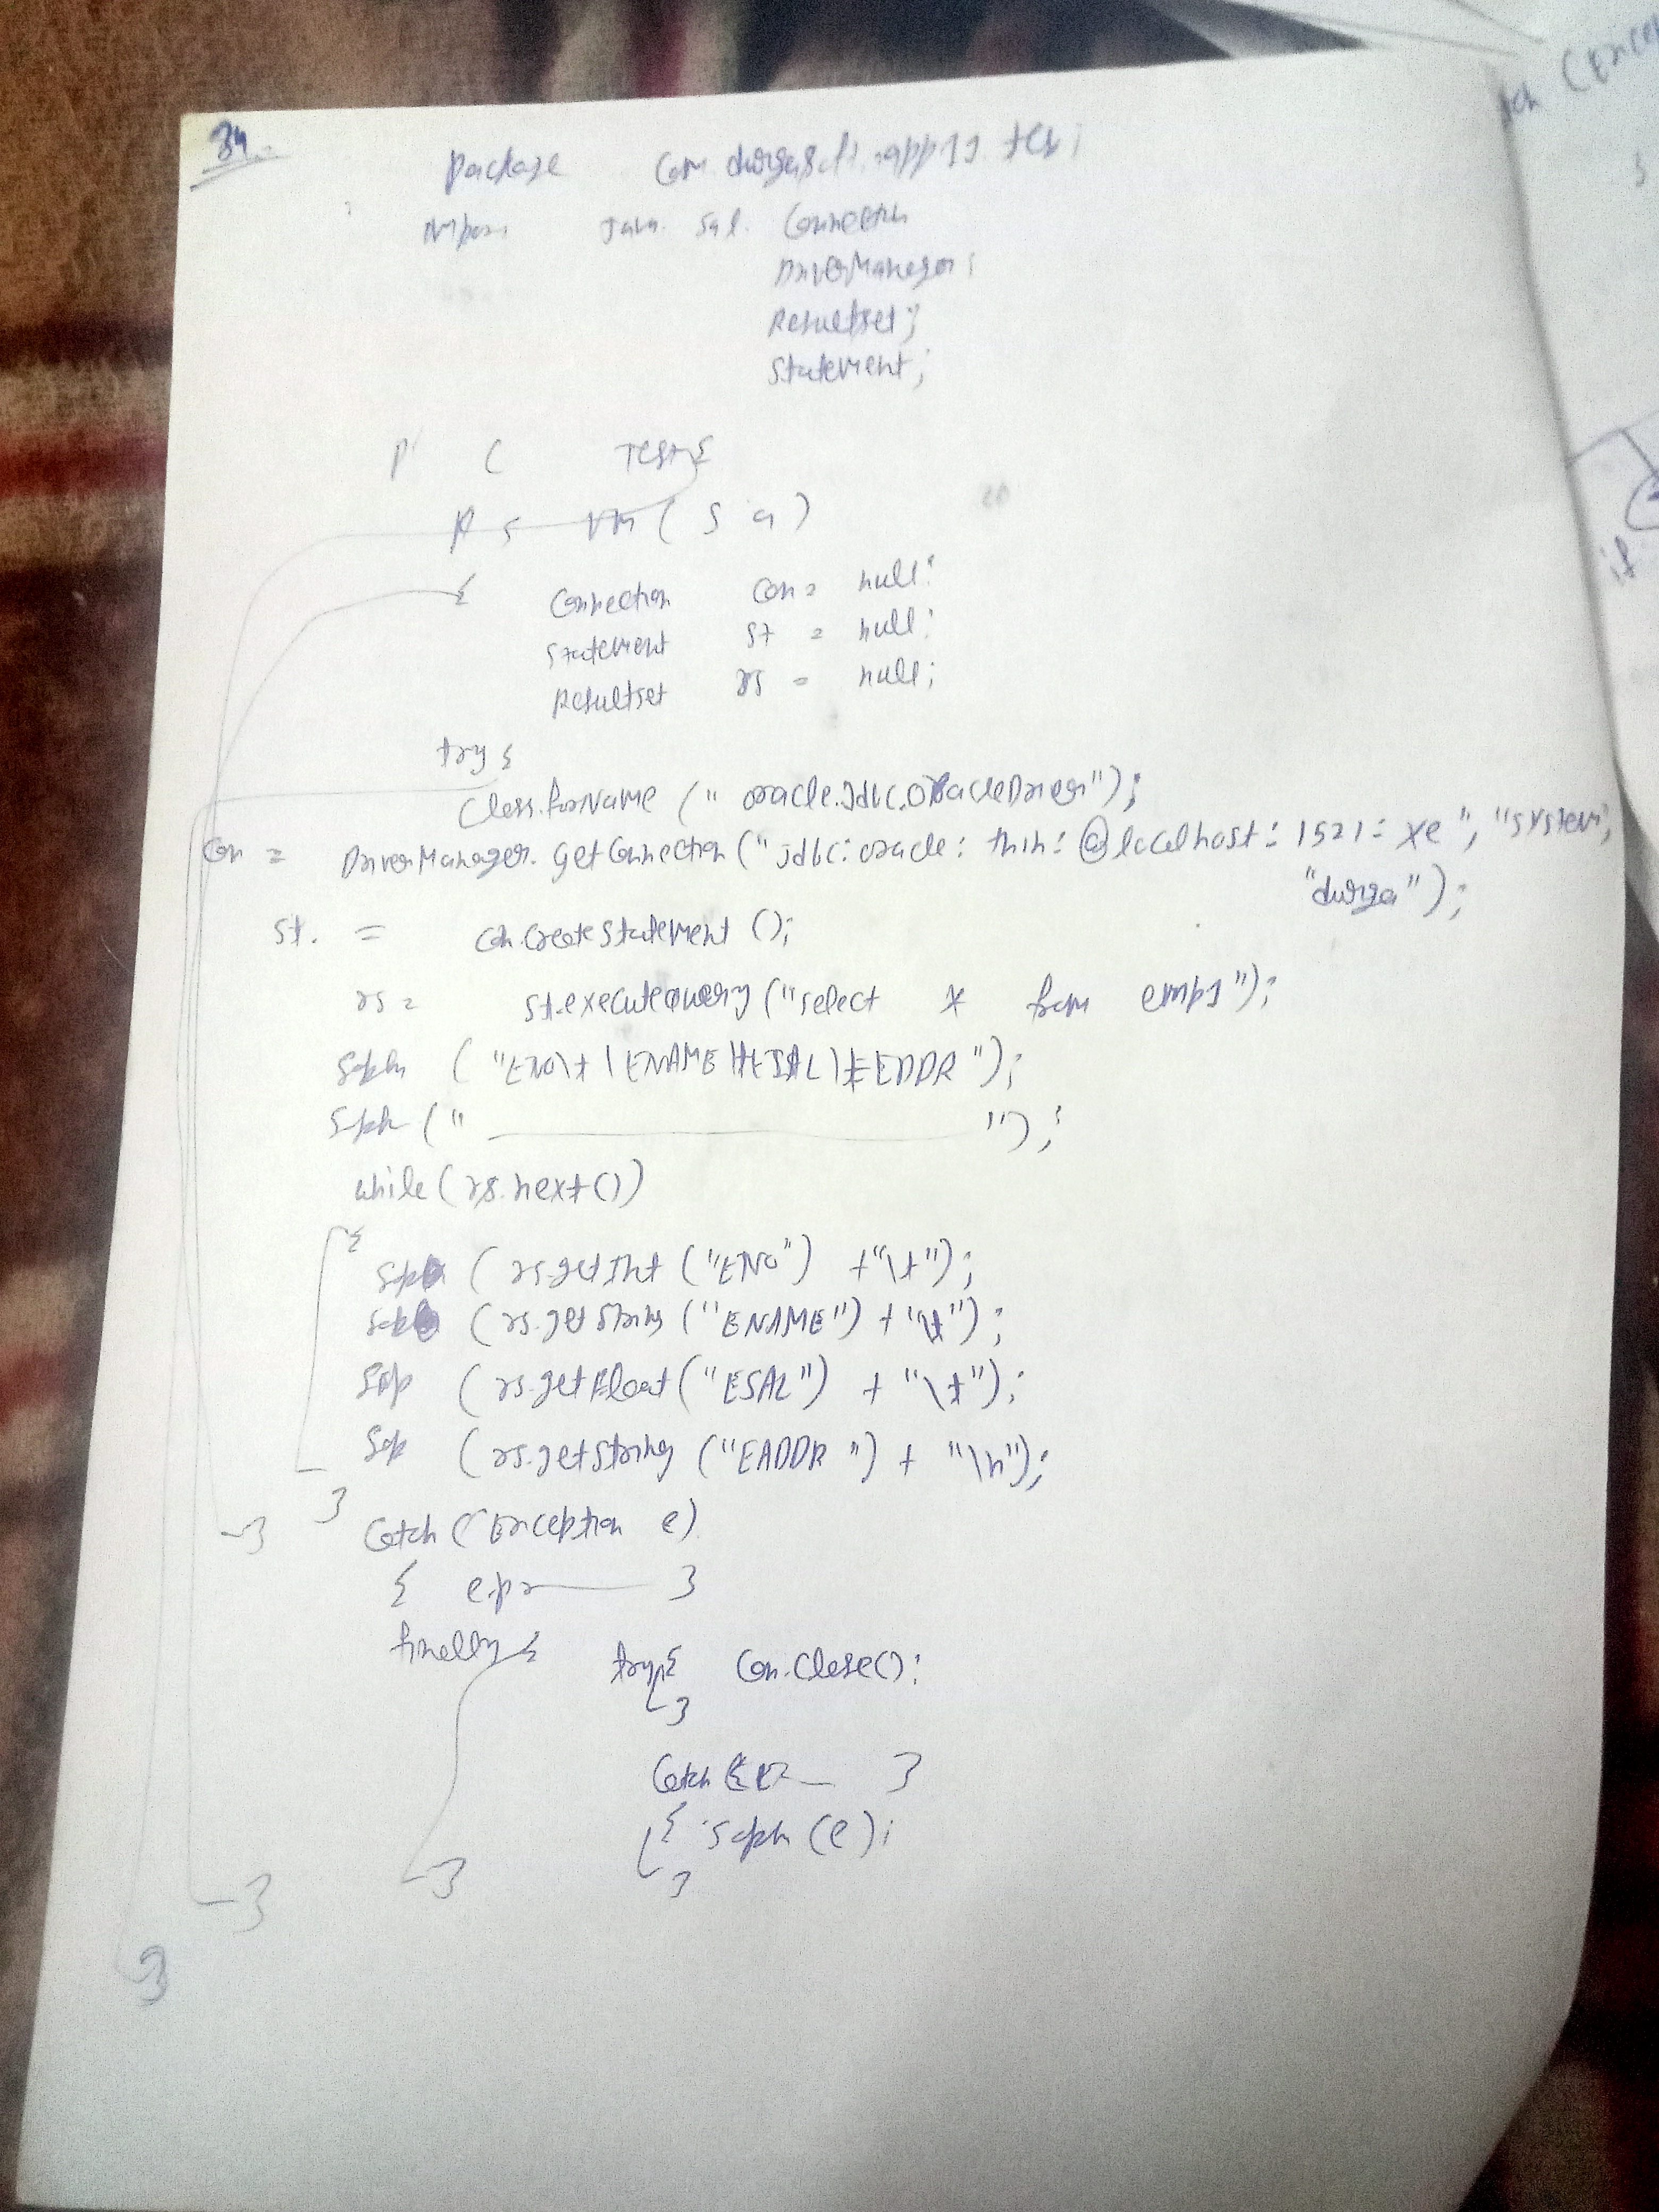 34.
Package com.durgasoft.app11.test;
import java.sql.Connection
DriverManager;
Resultset;
Statement;
P C Test {
P S VM ( S a )
{ Connection con = null;
Statement st = null;
Resultset rs = null;
try {
Class.forName (" oracle.jdbc.OracleDriver");
con = DriverManager.getConnection ("jdbc:oracle:thin:@localhost:1521:xe", "system",
"durga");
st. = con.createStatement ();
rs = st.executeQuery ("select * from emp1");
Sopln ("ENO\t | ENAME \tESAL\tEDDR");
Sopln (" ");
while (rs.next())
{
Sop (rs.getInt ("ENO") +"\t");
Sop (rs.getString ("ENAME") + "\t");
Sop (rs.getFloat ("ESAL") + "\t");
Sop (rs.getString ("EADDR ") + "\n");
}
} catch (Exception e)
{ e.pr }
finally {
try { con.close();
}
Catch }
{ Sopln (e);
}
}
}
}